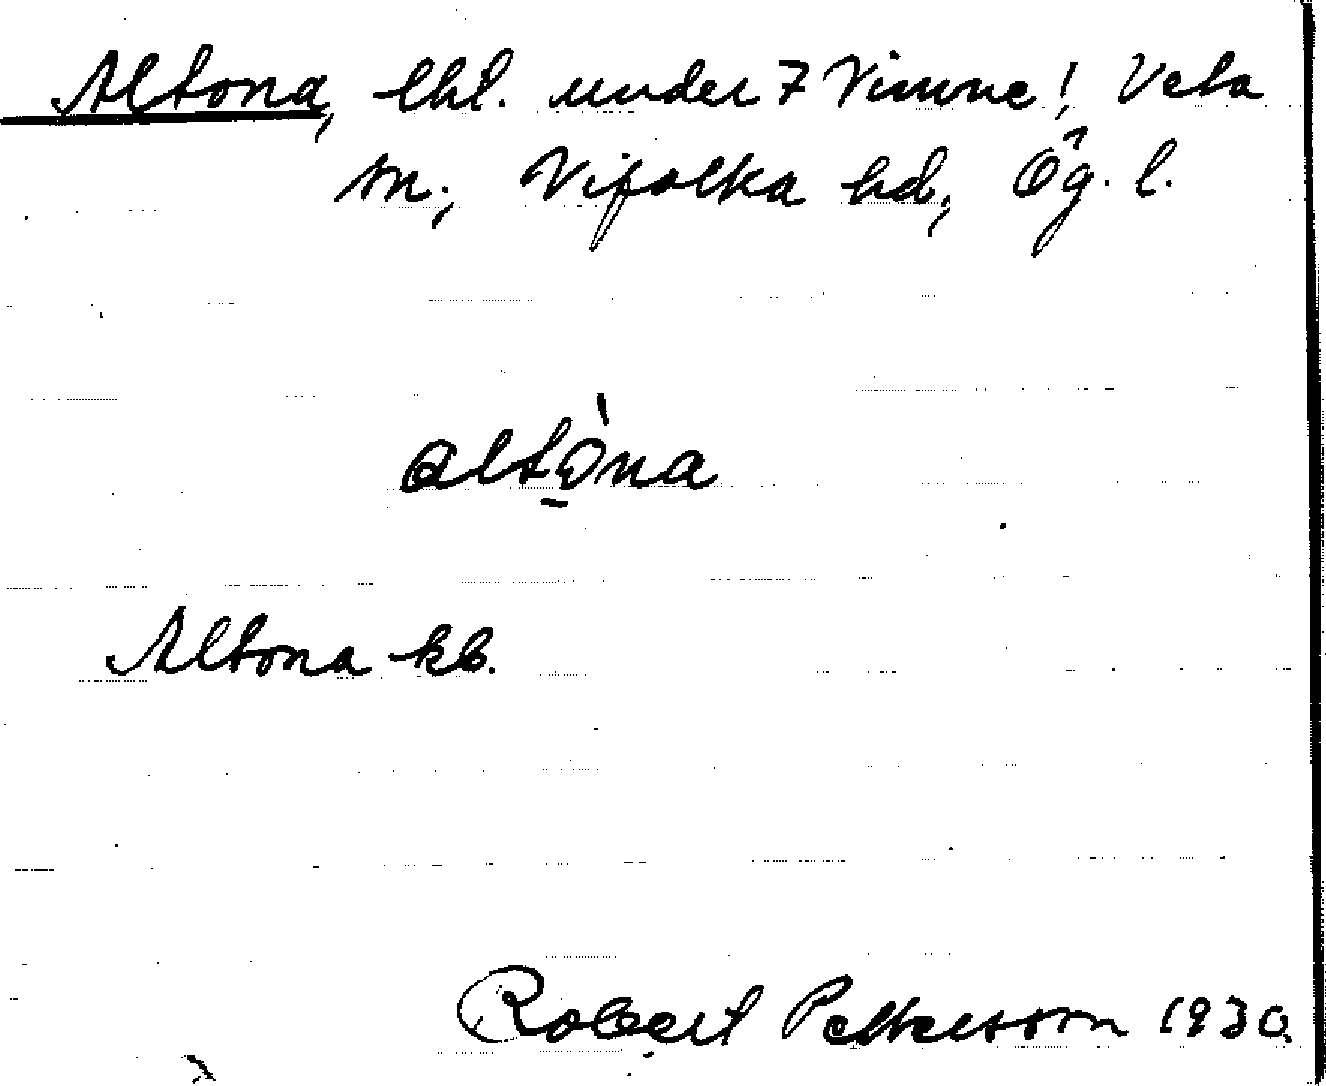 Altona, lht. under 7 Vimne!, Veta
sn., Vifolka hd, Ög. l.
altòna
Altona kb.
Robert Petterson 1930